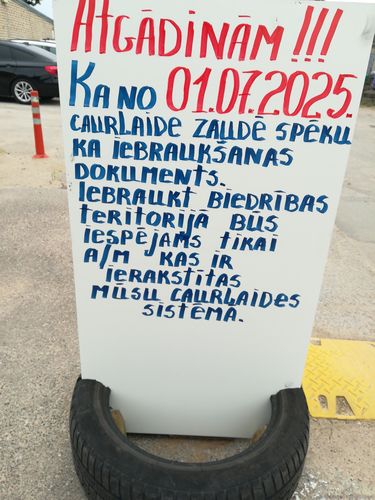 Atgādinām!!!
Ka no 01.07.2025.
caurlaide zaudē spēku
ka iebraukšanas
dokuments.
Iebraukt biedrības
teritorijā būs
iespējams tikai
a/m kas ir
ierakstītas
mūsu caurlaides
sistēmā.